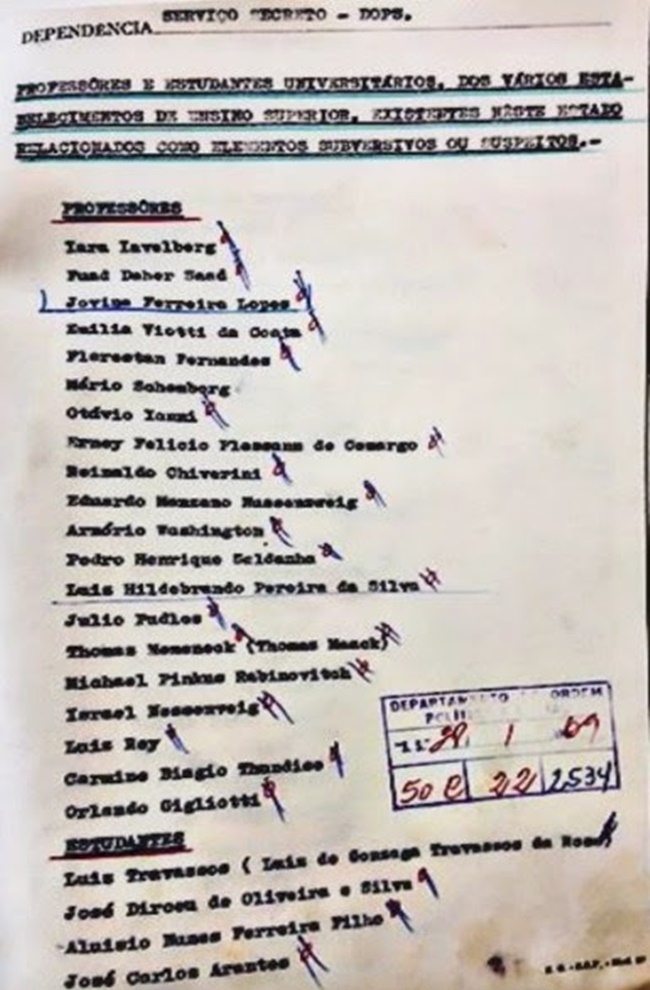 DEPENDÊNCIA SERVIÇO SECRETO - DOPS.
PROFESSÔRES E ESTUDANTES UNIVERSITÁRIOS, DOS VÁRIOS ESTA-
BELECIMENTOS DE ENSINO SUPERIOR, EXISTENTES NESTE ESTADO
RELACIONADOS COMO ELEMENTOS SUBVERSIVOS OU SUSPEITOS.-
PROFESSÔRES
Iara Iavelberg
Fuad Daher Saad
Jovina Ferreira Lopes
Emilia Viotti da Costa
Florestan Fernandes
Mário Schemberg
Otávio Ianni
Erney Felicio Plessann de Camargo
Reinaldo Chiverini
Eduardo Manzano Nussensweig
Armório Washington
Pedro Henrique Saldanha
Luis Hildebrando Pereira da Silva
Julio Pudles
Thomas (Thomas Maack)
Michael Pinkus Rabinovitch
Israel Nessenveig
Luis Rey
Carmine Biagio Thundise
Orlando Gigliotti
DEPARTAMENTO ORDEM
29 1 69
50 C 22 2534
ESTUDANTES
Luis Travassos ( Luis de Gonzaga Travassos da Rosa
José Dirceu de Oliveira e Silva
Aluisio Nunes Ferreira Filho
José Carlos Arantes